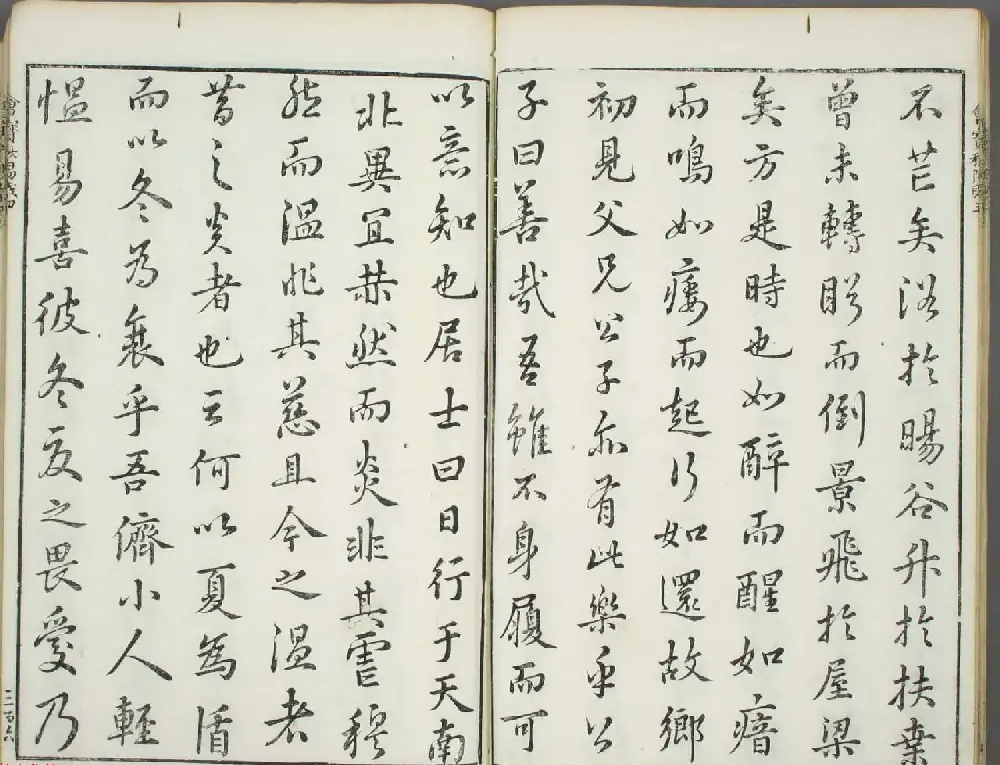 不芒矣浴於暘谷升於扶桒
曾未轉眄而倒景飛於屋梁
矣方是時也如醉而醒如瘖
而鳴如痿而起行如還故鄉
初見父兄公子亦有此樂乎公
子曰善哉吾雖不身履而可
以意知也居士曰日行于天南
北異宜赫然而炎非其虐穆
然而溫非其慈且今之溫者
昔之炎者也云何以夏為盾
而以冬為衰乎吾儕小人輕
慍易喜彼冬夏之畏愛乃
三百六